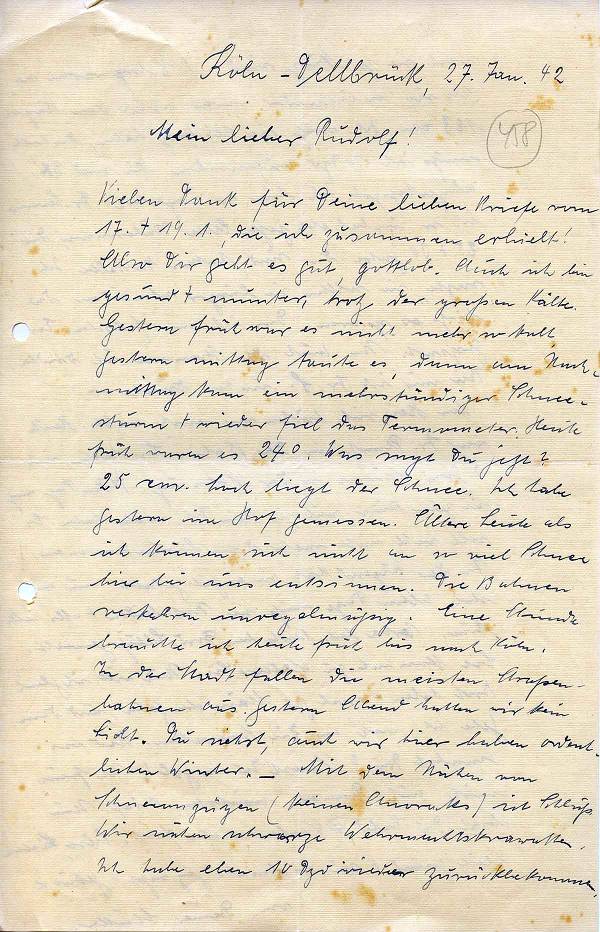 Köln-Dellbrück, 27. Jan. 42
458
Mein lieber Rudolf!
Vielen Dank für Deine lieben Briefe vom
17. + 19. 1., die ich zusammen erhielt!
Also Dir geht es gut, gottlob. Auch ich bin
gesund + munter, trotz der großen Kälte.
Gestern früh war es nicht mehr so kalt
gestern mittag taute es, dann am Nach-
mittag kam ein mehrstündiger Schnee-
sturm + wieder fiel das Termometer. Heute
früh waren es 24°. Was sagst Du jetzt?
25 cm. hoch liegt der Schnee. Ich habe
gestern im Hof gemessen. Ältere Leute als
ich können sich nicht an so viel Schnee
hier bei uns entsinnen. Die Bahnen
verkehren unregelmäßig. Eine Stunde
brauchte ich heute früh bis nach Köln.
In der Stadt fallen die meisten Straßen-
bahnen aus. Gestern Abend hatten wir kein
Licht. Du siehst, auch wir hier haben ordent-
lichen Winter. — Mit dem Nähen von
Schneeanzügen (keinen Anoraks) ist Schluß.
Wir nähen schwarze Wehrmachtskrawatten.
Ich habe eben 10 Dzd wieder zurückbekommen,